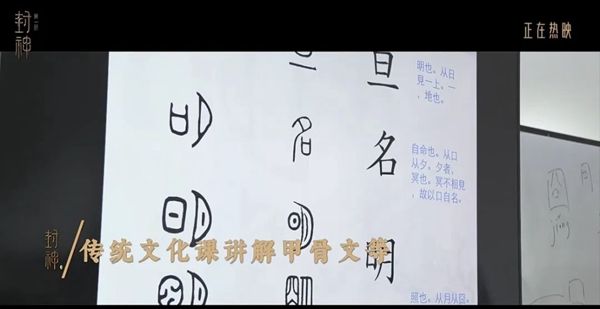 封神
第一部
正在热映
旦
旦
明也。从日
見一上。一
，地也。
名
名
自命也。从口
从夕。夕者，
冥也。冥不相見
，故以口自名。
明
明
照也。从月从囧。
封神
传统文化课讲解甲骨文等